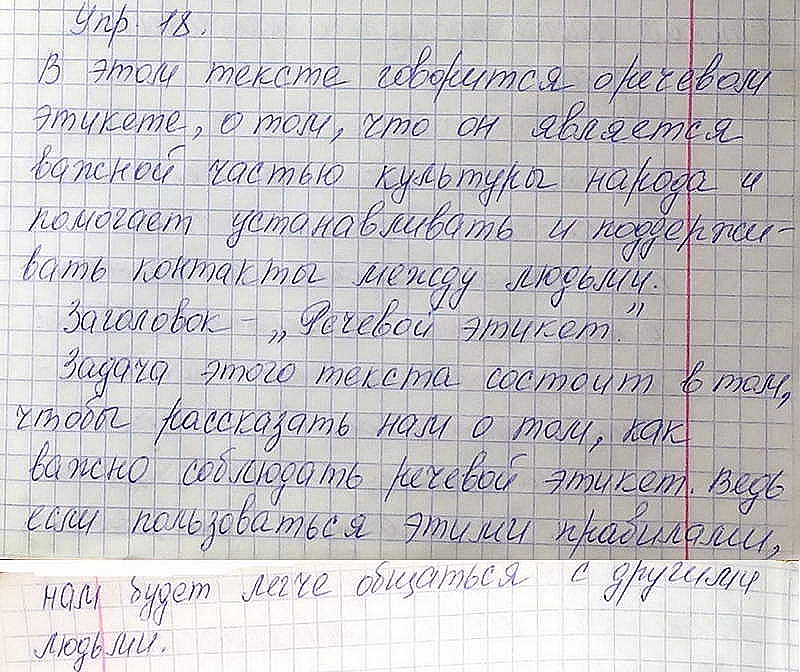 Упр. 18.
В этом тексте говорится о речевом
этикете, о том, что он является
важной частью культуры народа и
помогает устанавливать и поддержи-
вать контакты между людьми.
Заголовок – „Речевой этикет."
Задача этого текста состоит в том,
чтобы рассказать нам о том, как
важно соблюдать речевой этикет. Ведь
если пользоваться этими правилами,
нам будет легче общаться с другими
людьми.